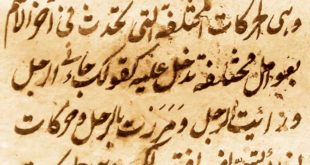 وهى الحركات المختلفة التى تحدث فى اخر الاسم
بعوامل مختلفة تدخل عليه كقولك جاءنى الرجل
ورايت الرجل ومررت بالرجل وحركات